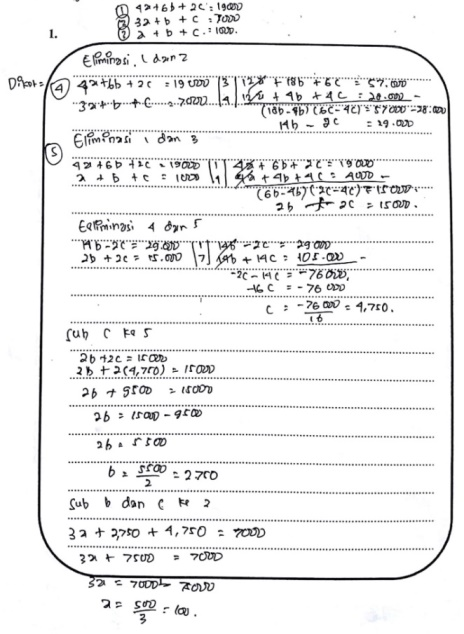 ① 4a+6b + 2c = 19000
② 3a + b + c = 7000
③ a + b + c = 1000.
1.
Eliminasi, 1 dan 2
④ 4a+6b + 2c = 19000 | 3 | 12a + 18b + 6c = 57.000
3a + b + c = 7000 | 4 | 12a + 4b + 4c = 28.000 -
(18b-4b) (6c-4c) = 57000 - 28.000
14b - 2c = 29.000
Eliminasi 1 dan 3
⑤
4a + 6b + 2c = 19000 | 1 | 4a + 6b + 2c = 19000
a + b + c = 1000 | 4 | 4a + 4b + 4c = 4000 -
(6b-4b) (2c-4c) = 15000.
2b 2c = 15000.
4 dan 5
14b - 2c = 29.000 | 1 | 14b - 2c = 29000
2b + 2c = 15.000 | 7 | 14b + 14c = 105.000 -
-2c - 14c = -76000,
-16c = -76000
c = -76000/16 = 4,750.
Sub c ke 5
2b + 2c = 15000
2b + 2(4,750) = 15000
2b + 9500 = 15000
2b = 15000 - 9500
2b = 5500
b = 5500/2 = 2750
Sub b dan c ke 2
3a + 2,750 + 4,750 = 7000
3a + 7500 = 7000
3a = 7000 -
a = 500/3 = 100.